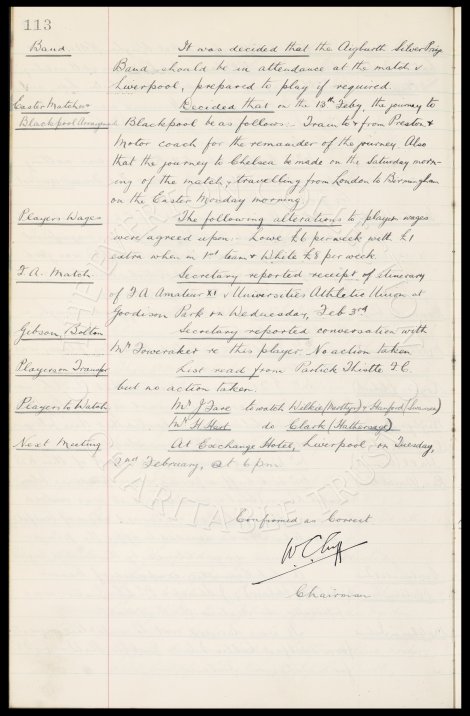 113
Band. It was decided that the Aigburth Silver Prize
Band, should be in attendance at the match v
Liverpool, prepared to play if required.
Easter Matches Decided that on the 13th Feby, the journey to
Blackpool Arrangement Blackpool be as follows:- Train to & from Preston &
Motor coach for the remainder of the journey. Also
that the journey to Chelsea be made on the Saturday morn-
ing of the match, travelling from London to Birmingham
on the Easter Monday morning
Players Wages The following alterations to players wages
were agreed upon:- Lowe £6 per week with £1
extra when in 1st team & While £8 per week.
F.A. Match Secretary reported receipt of itinerary
of F.A. Amateur XI v Universities Athletic Union at
Goodison Park on Wednesday, Feb 3rd
Gibson, Bolton Secretary reported conversation with
Mr Foweraker re this player. No action taken.
Players on Transfer List read from Partick Thistle F.C.
but no action taken.
Players to Watch Mr J Fare to watch Wilkie (Merthyr) & Hanford (Swansea)
Mr H Hart do Clark (Hathersage)
Next Meeting At Exchange Hotel, Liverpool on Tuesday,
2nd February, at 6 pm
CHARITABLE TRUST
Confirmed as Correct
W. C. Cuff
Chairman